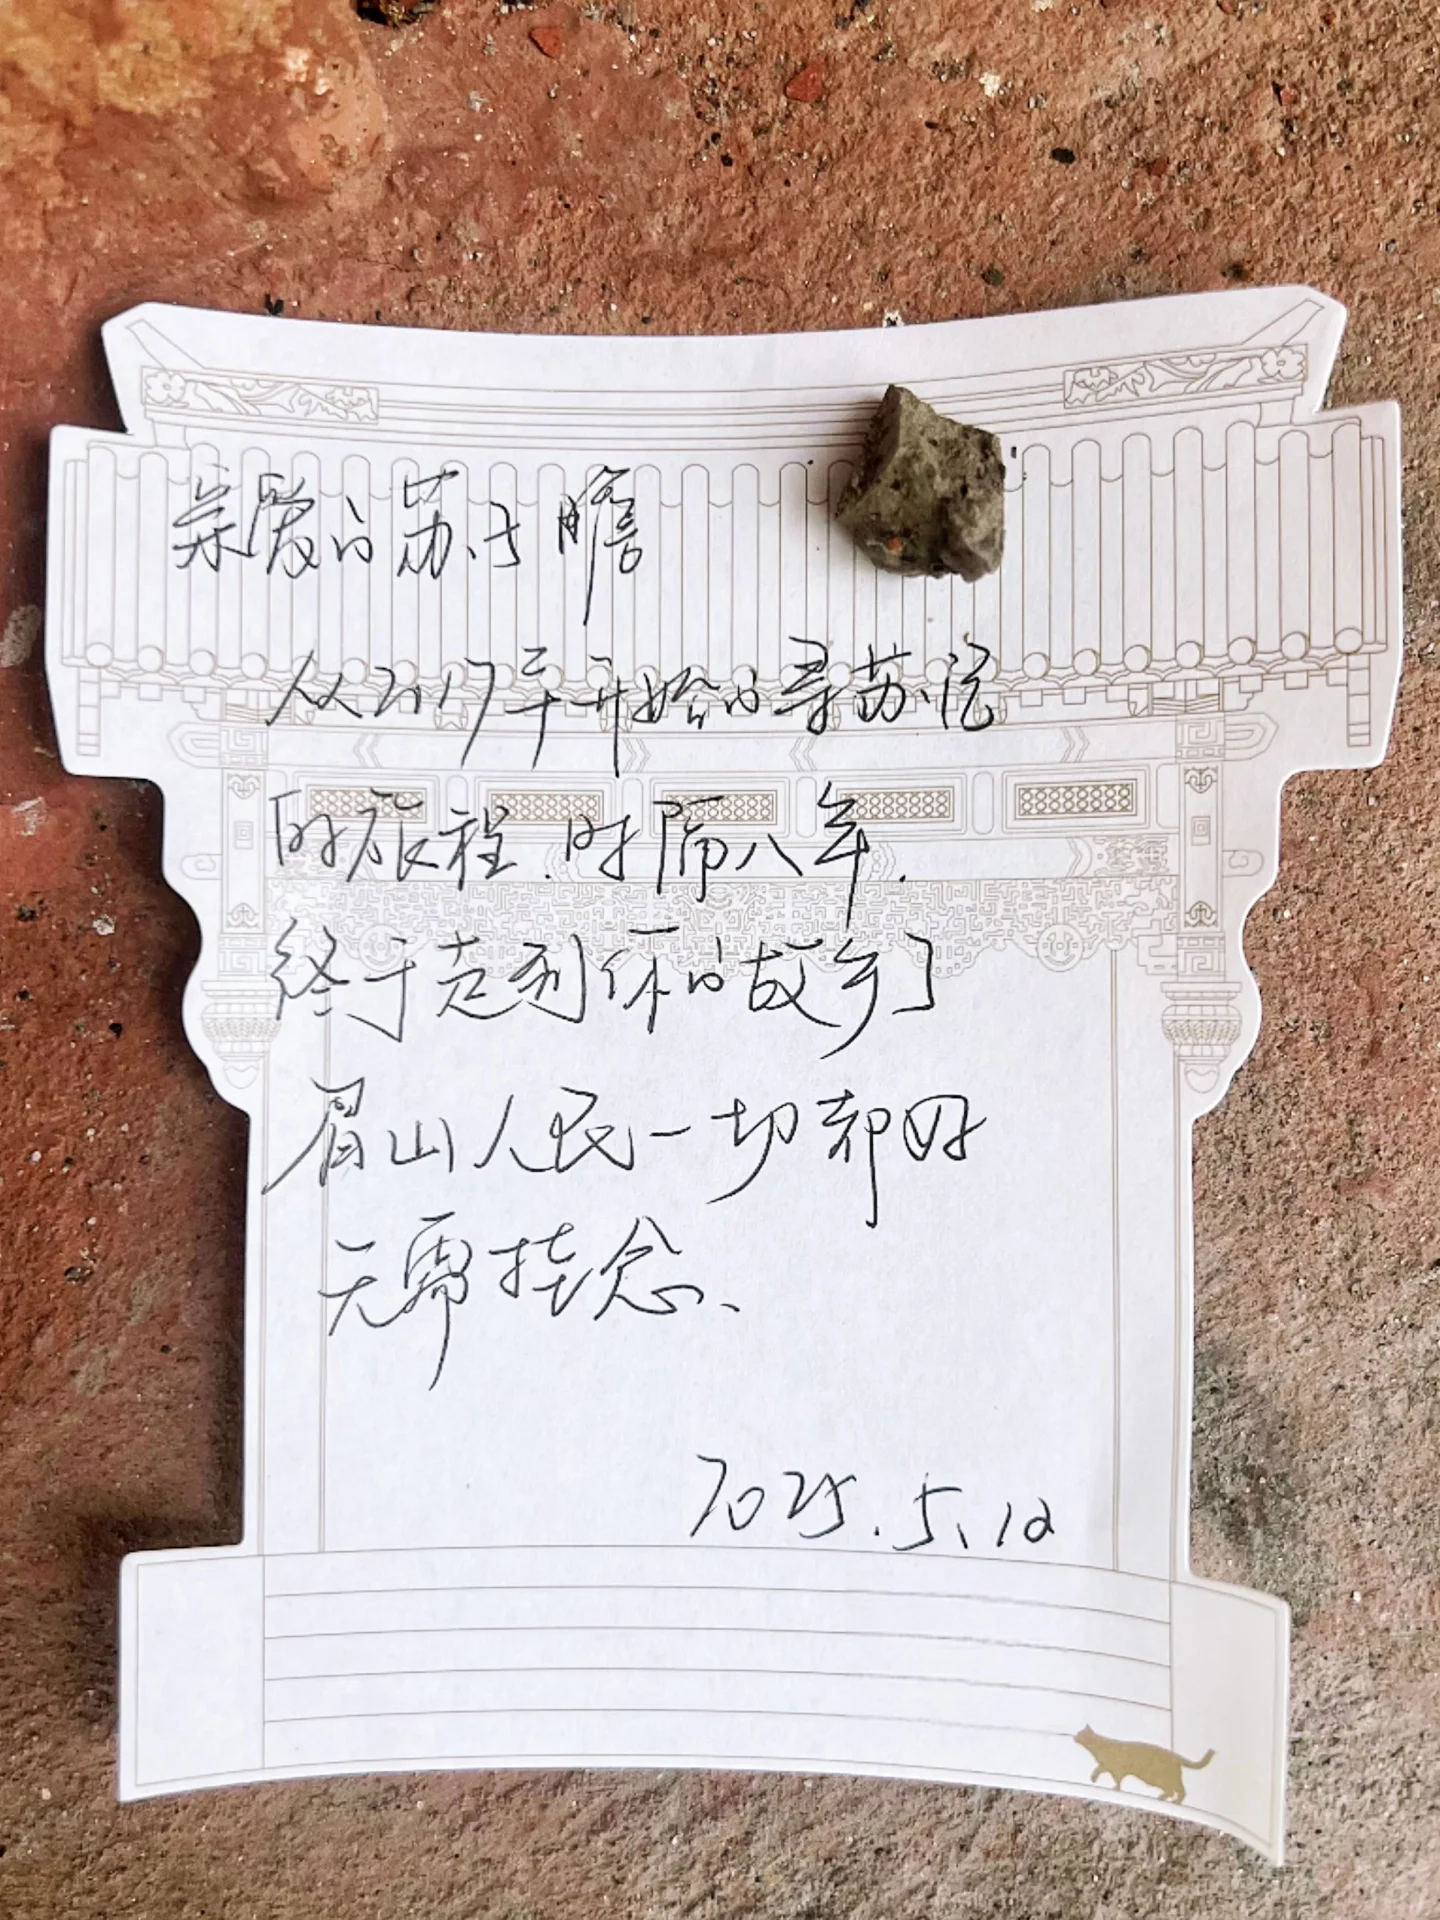 亲爱的苏子瞻
从2017年开始的寻苏记
的旅程.时隔八年.
终于走到你的故乡了
眉山人民一切都好
无需挂念、
2025.5.12